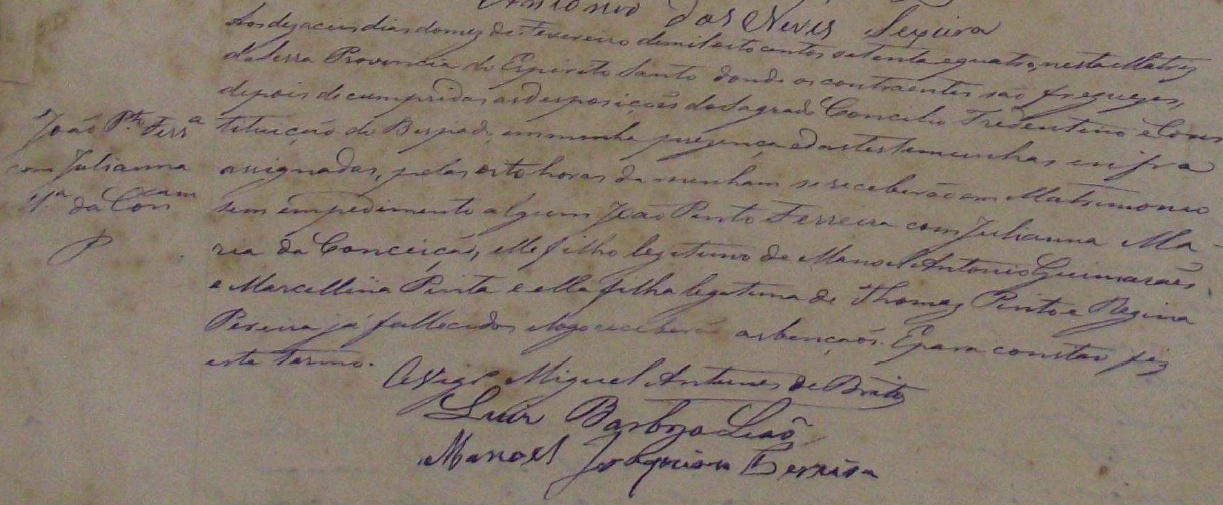 Antonio das Neves Teixeira
Aos dezaceis dias do mez de Fevereiro de mil oito centos setenta e quatro, nesta Matriz
da Serra Provincia do Espirito Santo donde os contraentes são freguezes,
depois de cumpridas as desposições do Sagrado Concilio Tredentino e Cons
João Pto Ferra
tituição do Bispado, em minha presença e das testemunhas en fra
com Julianna
assignadas, pelas oito horas da menham se receberão em Matrimonio
Ma da Concam
sem empedimento algum João Pinto Ferreira com Julianna Ma-
P
ria da Conceição, elle filho legetimo de Manoel Antonio Guimarães
e Marcellina Pinta e ella filha legetima de Thomaz Pinto e Regina
Pereira já fallecidos e logo receberão as bençãos. E para constar fiz
este termo.
O Vigro Miguel Antunes de Brito
Luiz Barboza Leão
Manoel Joaquim Pereira